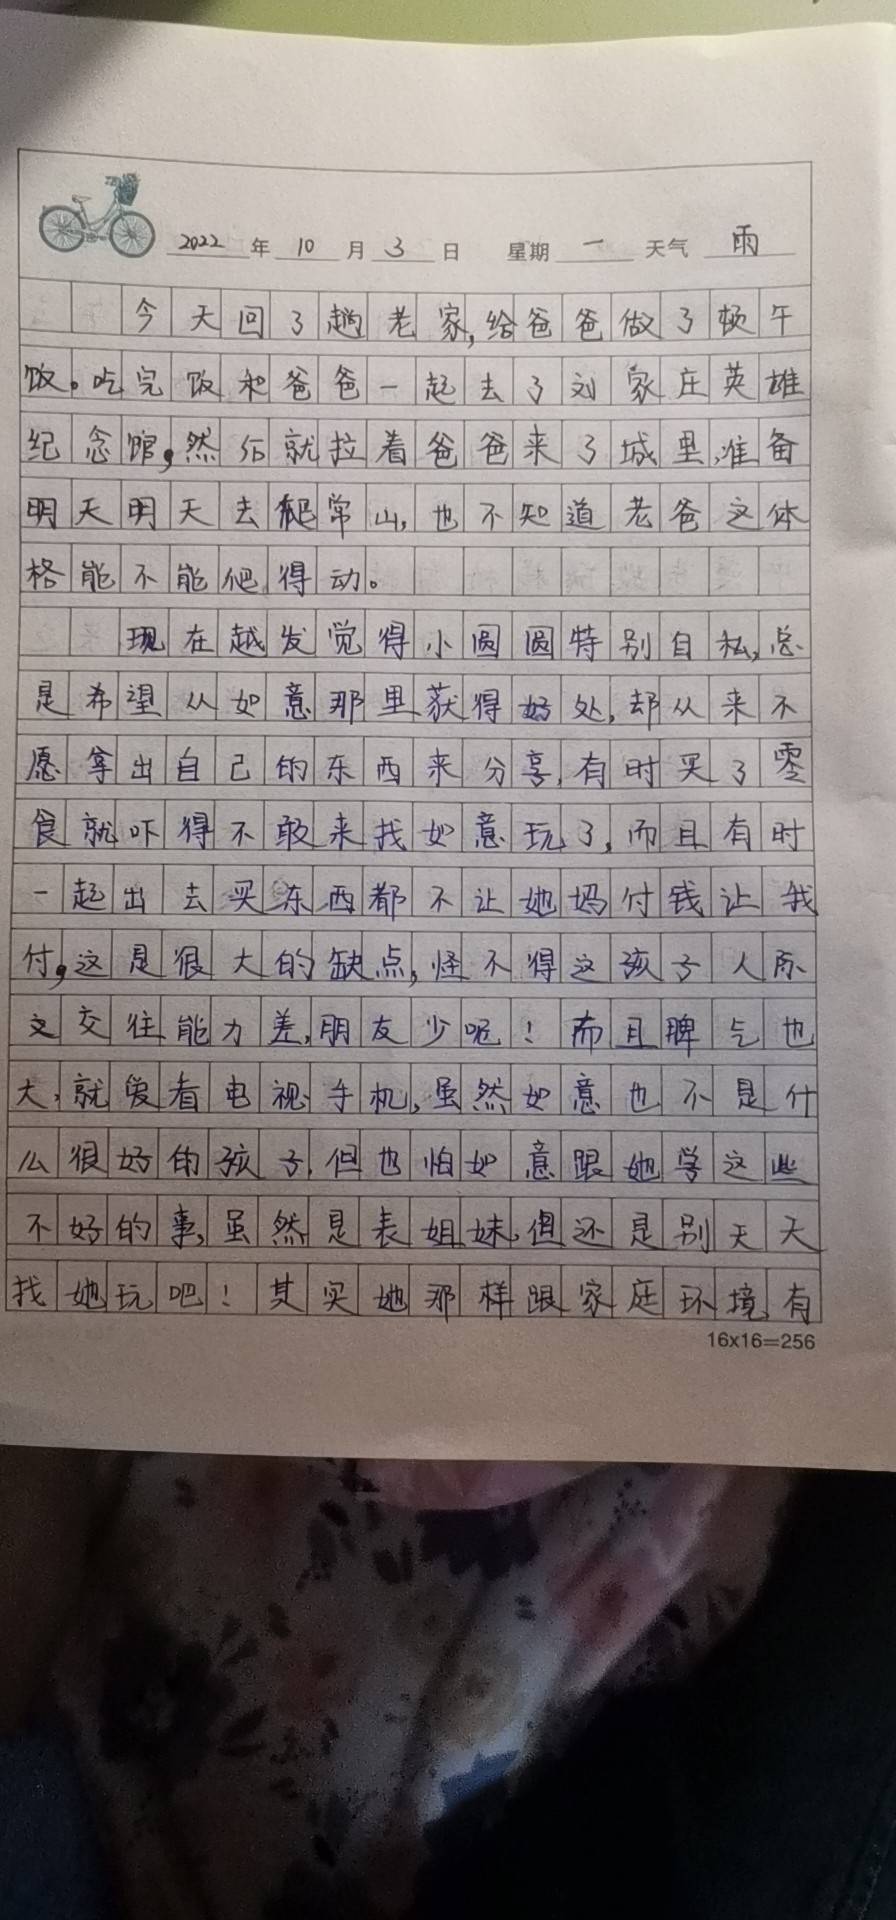 2022年10月3日 星期一 天气雨
今天回了趟老家,给爸爸做了顿午
饭。吃完饭和爸爸一起去了刘家庄英雄
纪念馆,然后就拉着爸爸来了城里,准备
明天明天去爬常山,也不知道老爸这体
格能不能爬得动。
现在越发觉得小圆圆特别自私,总
是希望从如意那里获得好处,却从来不
愿拿出自己的东西来分享,有时买了零
食就吓得不敢来找如意玩了,而且有时
一起出去买东西都不让她妈付钱让我
付,这是很大的缺点,怪不得这孩子人际
交往能力差,朋友少呢!而且脾气也
大,就爱看电视手机,虽然如意也不是什
么很好的孩子,但也怕如意跟她学这些
不好的事,虽然是表姐妹,但还是别天天
找她玩吧!其实她那样跟家庭环境有
16x16=256